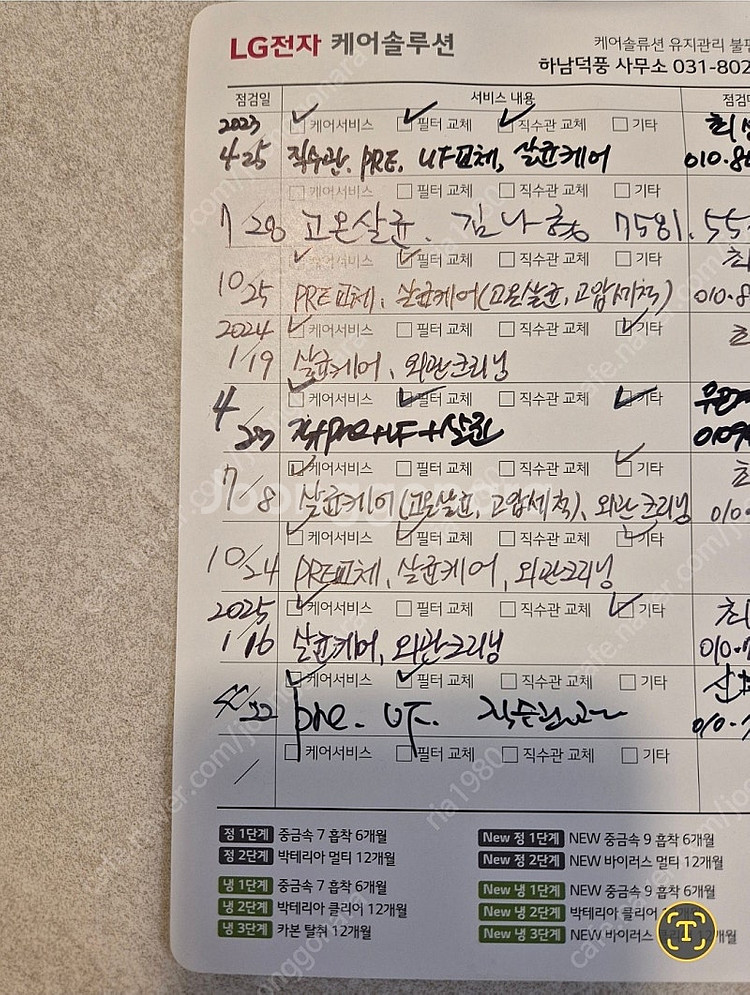 LG전자 케어솔루션
케어솔루션 유지관리 불편
하남덕풍 사무소 031-802
점검일 서비스 내용 점검
2023 케어서비스 필터 교체 직수관 교체 기타
4.25 직수관. PRE, UF교체, 살균케어 010.86
케어서비스 필터 교체 직수관 교체 기타
7/28 고온살균. 7581.55
케어서비스 필터 교체 직수관 교체 기타 최
10/25 PRE교체, 살균케어(고온살균, 고압세척) 010.8
2024 케어서비스 필터 교체 직수관 교체 기타
1/19 살균케어, 외관크리닝
4 케어서비스 필터 교체 직수관 교체 기타
+UF+살균
케어서비스 필터 교체 직수관 교체 기타
7/8 살균케어(고온살균, 고압세척), 외관크리닝 010
케어서비스 필터 교체 직수관 교체 기타
10/24 PRE교체, 살균케어, 외관크리닝
2025 케어서비스 필터 교체 직수관 교체 기타 최
1/16 살균케어, 외관크리닝
케어서비스 필터 교체 직수관 교체 기타
22 pre. UF. 010
케어서비스 필터 교체 직수관 교체 기타
/
정 1단계 중금속 7 흡착 6개월 New 정 1단계 NEW 중금속 9 흡착 6개월
정 2단계 박테리아 멀티 12개월 New 정 2단계 NEW 바이러스 멀티 12개월
냉 1단계 중금속 7 흡착 6개월 New 냉 1단계 NEW 중금속 9 흡착 6개월
냉 2단계 박테리아 클리어 12개월 New 냉 2단계 박테리아 클리어
냉 3단계 카본 탈취 12개월 New 냉 3단계 NEW 바이러스 개월